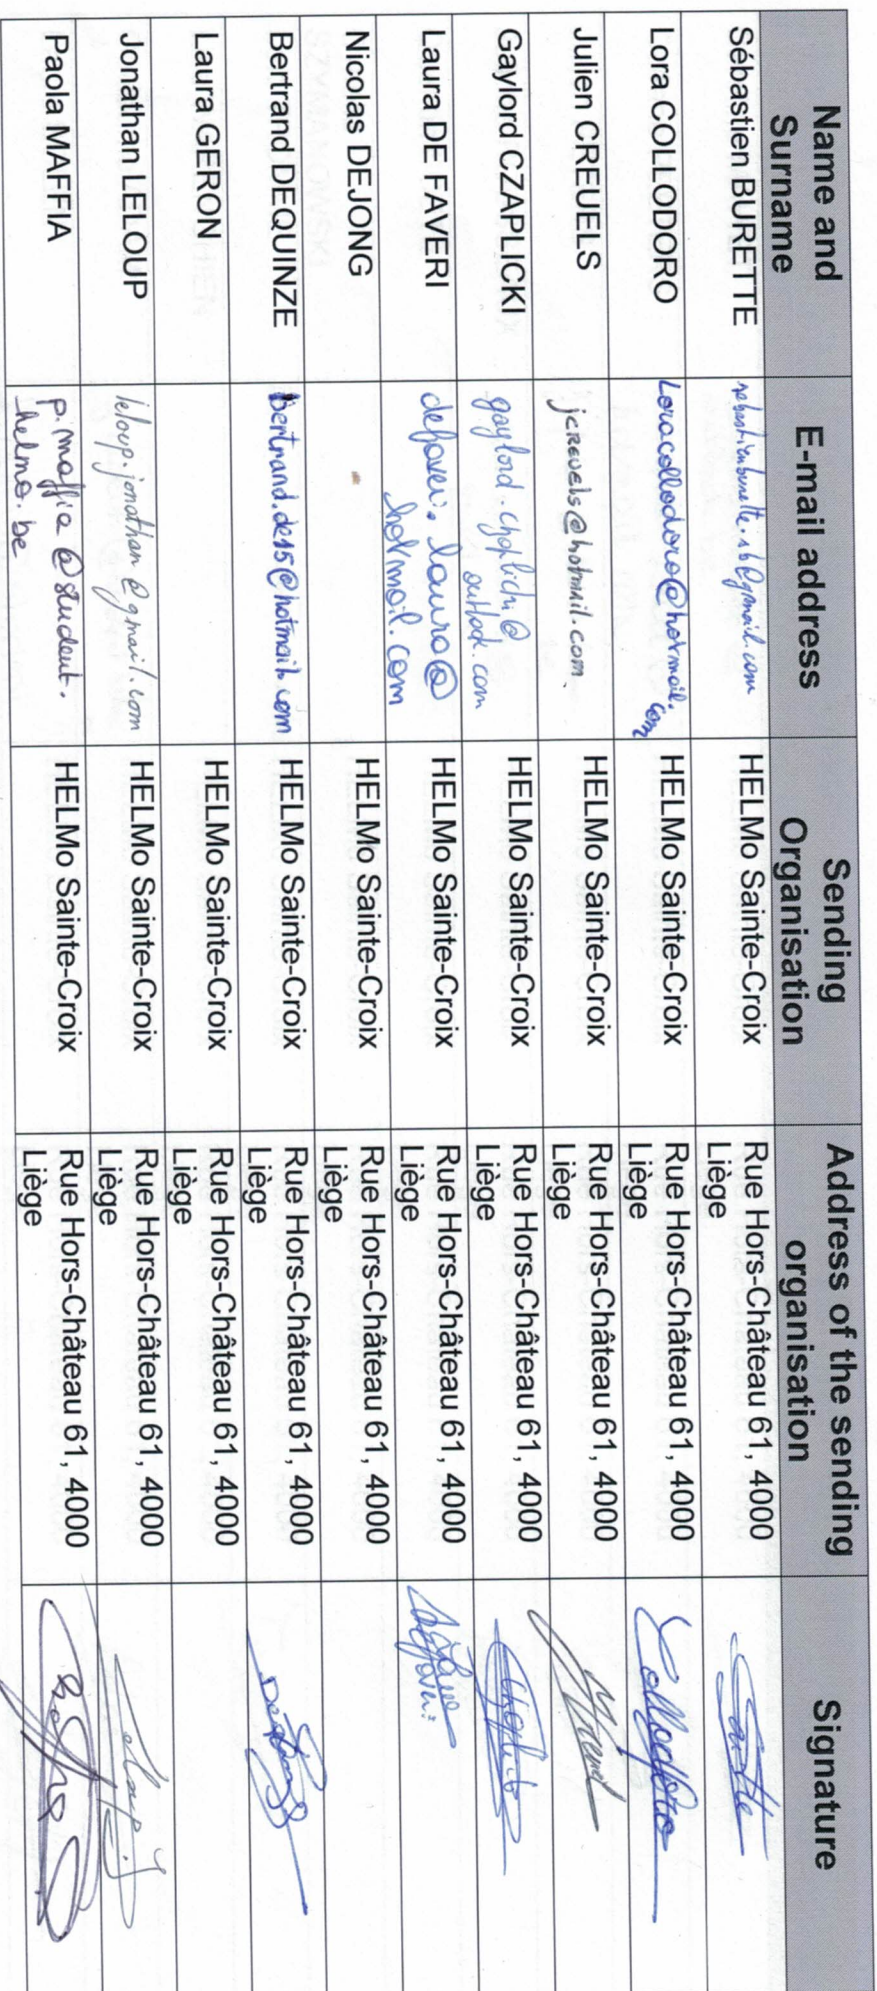 Name and Surname E-mail address Sending Organisation Address of the sending organisation Signature
Sébastien BURETTE sebastienburette.sb@gmail.com HELMo Sainte-Croix Rue Hors-Château 61, 4000 Liège
Lora COLLODORO Loracollodoro@hotmail.com HELMo Sainte-Croix Rue Hors-Château 61, 4000 Liège Collodoro
Julien CREUELS jcreuels@hotmail.com HELMo Sainte-Croix Rue Hors-Château 61, 4000 Liège
Gaylord CZAPLICKI gaylord.czaplicki@outlook.com HELMo Sainte-Croix Rue Hors-Château 61, 4000 Liège
Laura DE FAVERI defaveri.laura@hotmail.com HELMo Sainte-Croix Rue Hors-Château 61, 4000 Liège
Nicolas DEJONG HELMo Sainte-Croix Rue Hors-Château 61, 4000 Liège
Bertrand DEQUINZE bertrand.de15@hotmail.com HELMo Sainte-Croix Rue Hors-Château 61, 4000 Liège
Laura GERON HELMo Sainte-Croix Rue Hors-Château 61, 4000 Liège
Jonathan LELOUP leloup.jonathan@gmail.com HELMo Sainte-Croix Rue Hors-Château 61, 4000 Liège
Paola MAFFIA p.maffia@student.helmo.be HELMo Sainte-Croix Rue Hors-Château 61, 4000 Liège